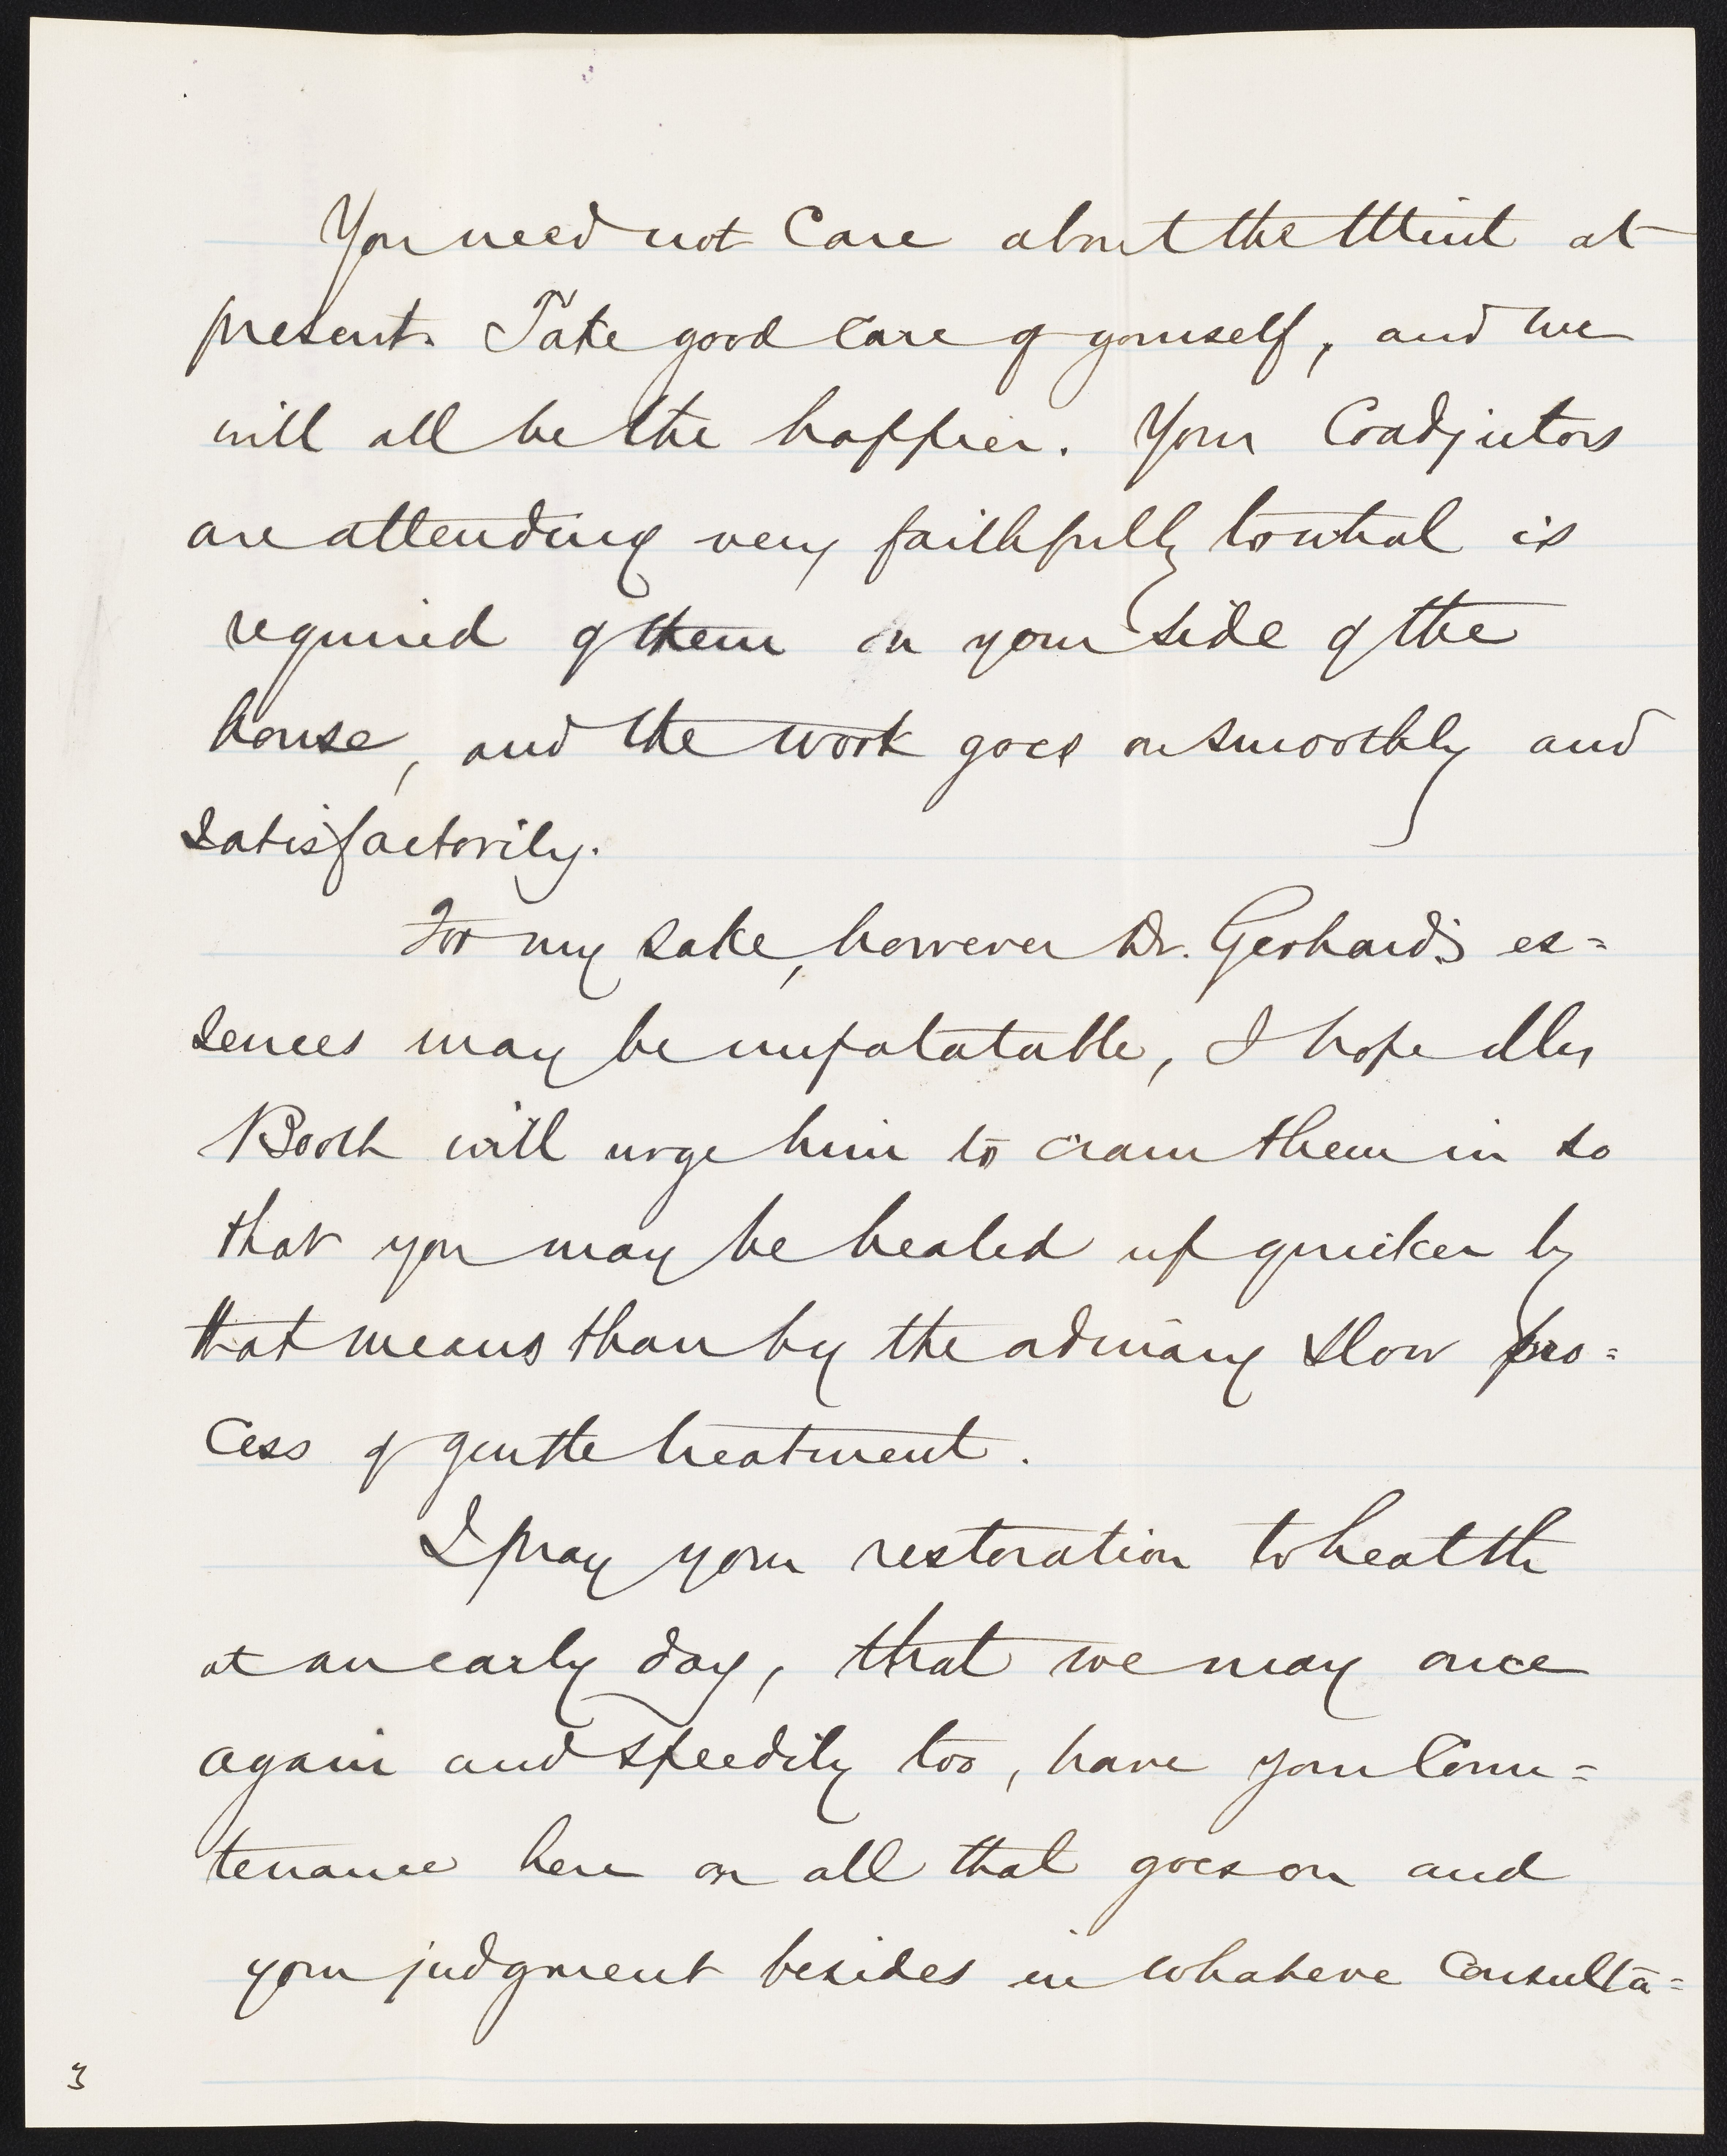 You need not Care about the Mint at
present. Take good care of yourself, and we
will all be the happier. Your Coadjutors
are attending very faithfully to what is
required of them on your side of the
house, and the work goes on smoothly and
satisfactorily.
For my sake, however Dr. Gerhard's es=
sences may be unpalatable, I hope Mrs
Booth will urge him to cram them in so
that you may be healed up quicker by
that means than by the ordinary slow pro=
cess of gentle treatment.
I pray your restoration to health
at an early day, that we may once
again and speedily too, have your Coun=
tenance here on all that goes on and
your judgment besides in whatever Consulta=
3